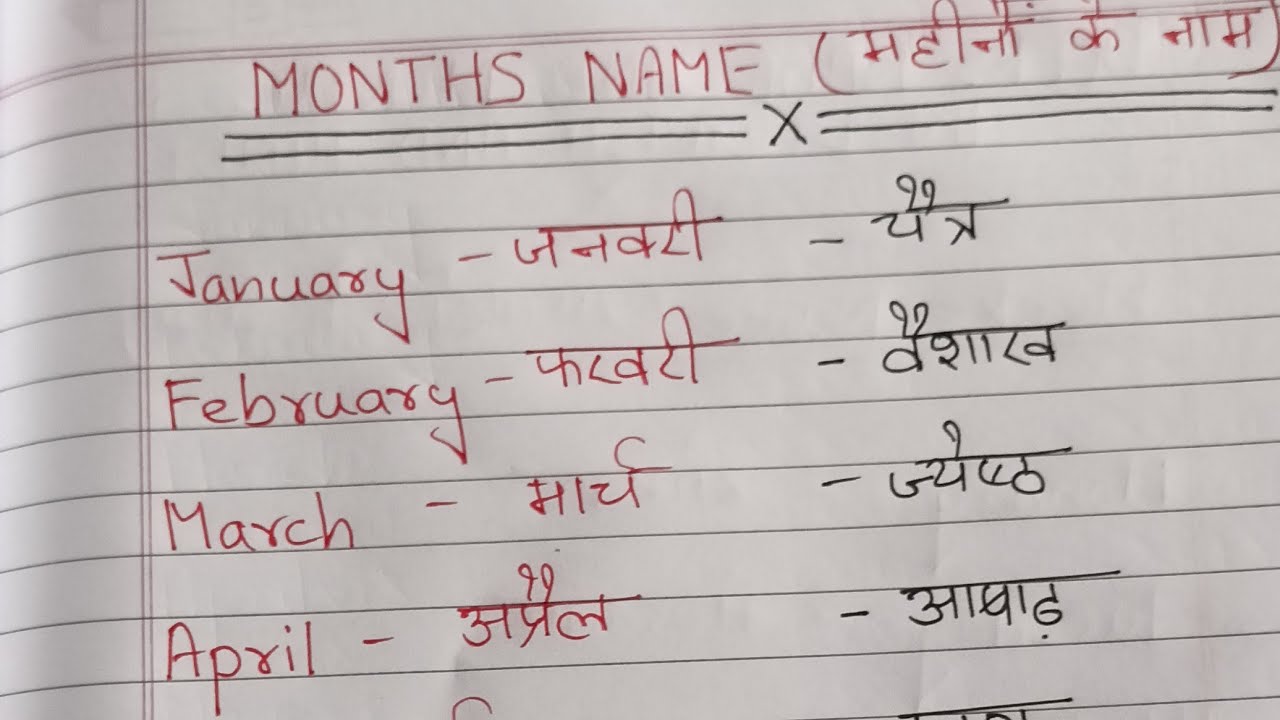 MONTHS NAME (महीनों के नाम)
January - जनवरी - चैत्र
February - फरवरी - वैशाख
March - मार्च - ज्येष्ठ
April - अप्रैल - आषाढ़